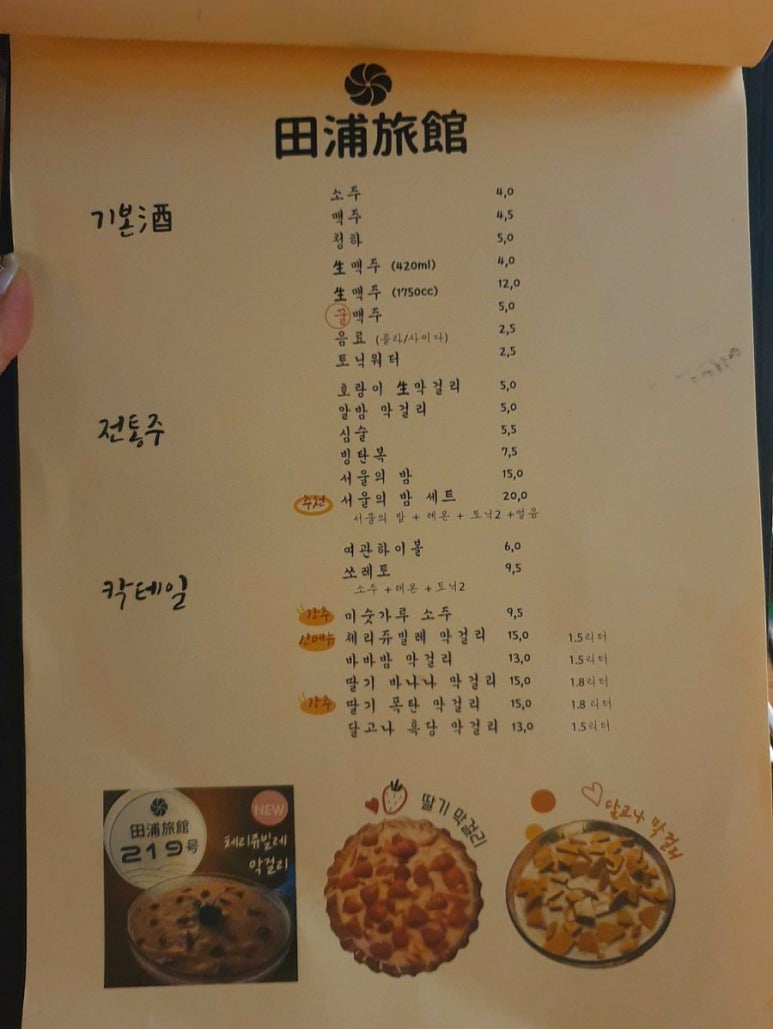 田浦旅館
기본酒
소주 4,0
맥주 4,5
청하 5,0
生맥주 (420ml) 4,0
生맥주 (1750cc) 12,0
꿀맥주 5,0
음료 (콜라/사이다) 2,5
토닉워터 2,5
전통주
호랑이 生막걸리 5,0
알밤 막걸리 5,0
심술 5,5
빙탄복 7,5
서울의 밤 15,0
추천 서울의 밤 세트 20,0
서울의 밤 + 레몬 + 토닉2 +얼음
칵테일
여관하이볼 6,0
쏘레토 9,5
소주 +레몬 +토닉2
강추 미숫가루 소주 9,5
신메뉴 체리쥬빌레 막걸리 15,0 1.5리터
바바밤 막걸리 13,0 1.5리터
딸기 바나나 막걸리 15,0 1.8리터
강추 딸기 폭탄 막걸리 15,0 1.8 리터
달고나 흑당 막걸리 13,0 1.5리터
田浦旅館
219号
NEW
체리쥬빌레
막걸리
딸기 막걸리
달고나 막걸리